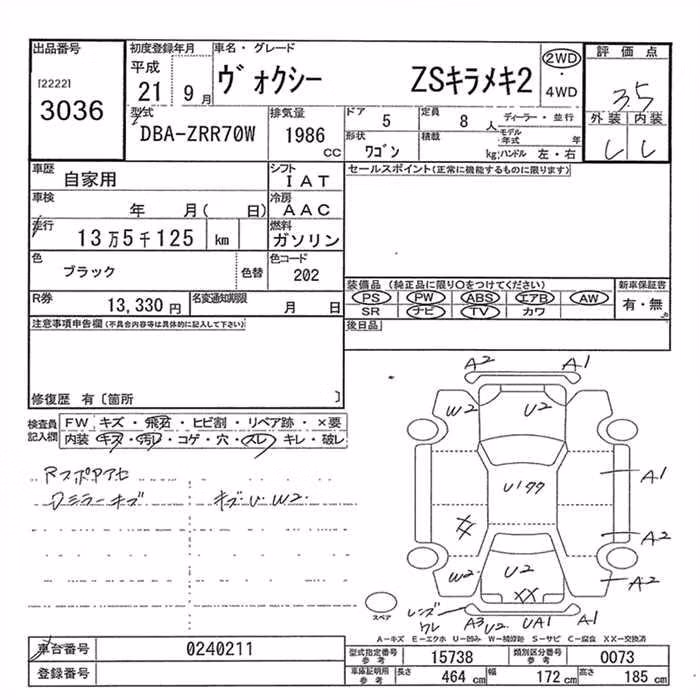 出品番号 初度登録年月 車名・グレード 2WD・4WD 評価点
[2222]
3036
平成
21 9月
ヴォクシー ZSキラメキ2
3.5
外装 内装
型式 DBA-ZRR70W
排気量 1986 cc
ドア 5 定員 8人 ディーラー・並行
形状 ワゴン 積載 kg モデル年式 年
ハンドル 左・右
車歴 自家用
シフト IAT
セールスポイント(正常に機能するものに限ります)
車検 年 月( 日)
冷房 AAC
走行 13万5千125 km
燃料 ガソリン
色 ブラック 色替
色コード 202
装備品 (純正品に限り○をつけてください) 新車保証書
PS PW ABS エアB AW 有・無
SR ナビ TV カワ
R券 13,330円 名変通知期限 月 日
後日品
注意事項申告欄(不具合内容等は具体的に記入して下さい)
修復歴 有〔箇所 〕
検査員記入欄
FW キズ・飛石・ヒビ割・リペア跡・×要
内装 キズ・汚レ・コゲ・穴・スレ・キレ・破レ
ワミラーキズ キズ・U・W2
A2 A1
W2 U2
U177
A1
XX
A2
W2 U2 A2
XX
スペア
レンズワレ A3 U2 UA1 A1
A-キズ E-エクボ U-凹み W-補修跡 S-サビ C-腐食 XX-交換済
車台番号 0240211
登録番号
型式指定番号 参考 15738 類別区分番号 参考 0073
車庫証明用 参考 長さ 464 cm 幅 172 cm 高さ 185 cm